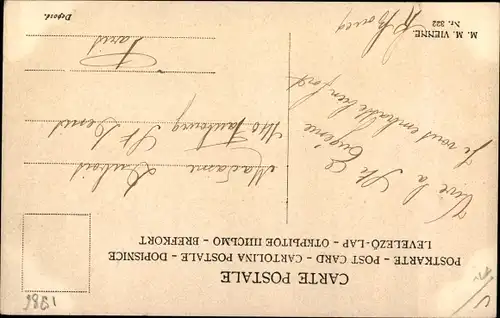 CARTE POSTALE
POSTKARTE – POST CARD – CARTOLINA POSTALE – DOPISNICE
LEVELEZŐ-LAP – ОТКРЫТОЕ ПИСЬМО – BREFKORT
Vive la Ste
Eugénie
Je vous embrasse bien fort
M. M. VIENNE
Nr. 322
Madame
Dubois
140 Faubourg St Denis
Paris
Deposé.